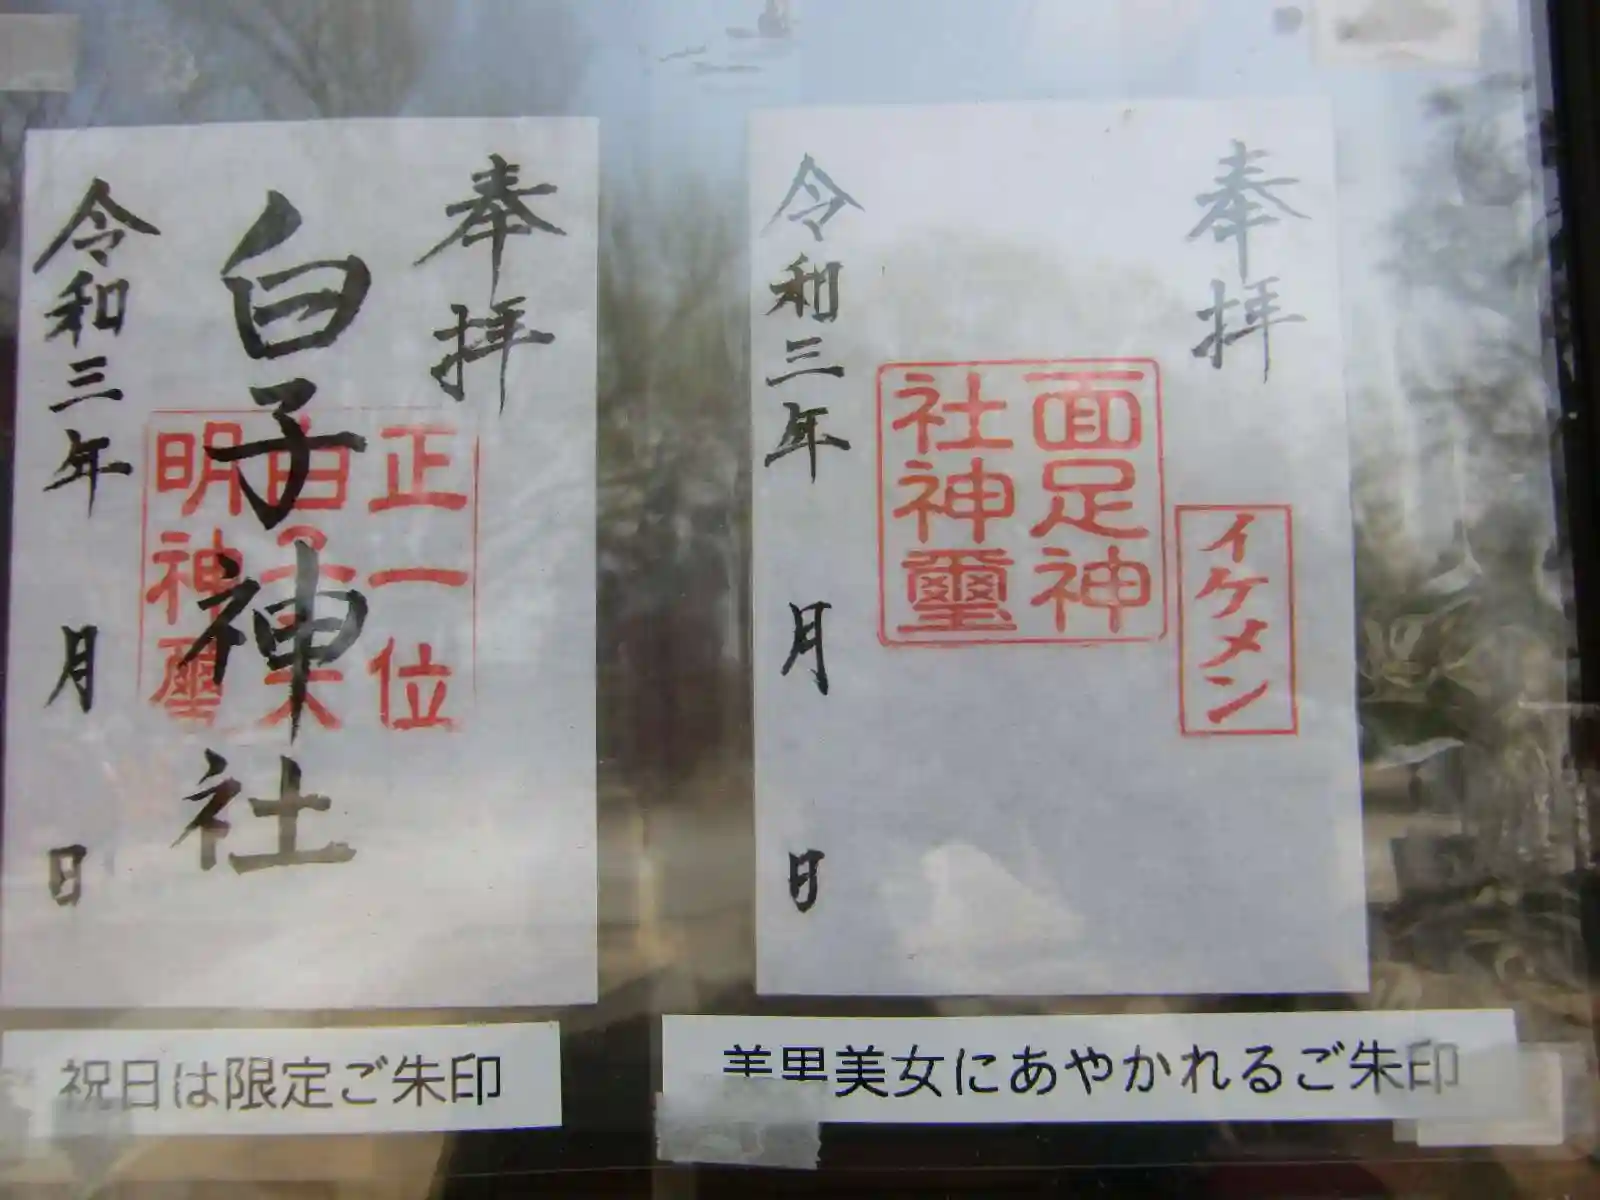 奉拝
白子神社
正一位
白子大
明神璽
令和三年 月 日
祝日は限定ご朱印
奉拝
面足神
社神璽
イケメン
令和三年 月 日
美里美女にあやかれるご朱印